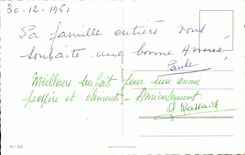 30-12-1961
La famille entière vous
souhaite une bonne Année
Paule
Meilleurs souhaits pour une année
prospère et clémente. Amicalement